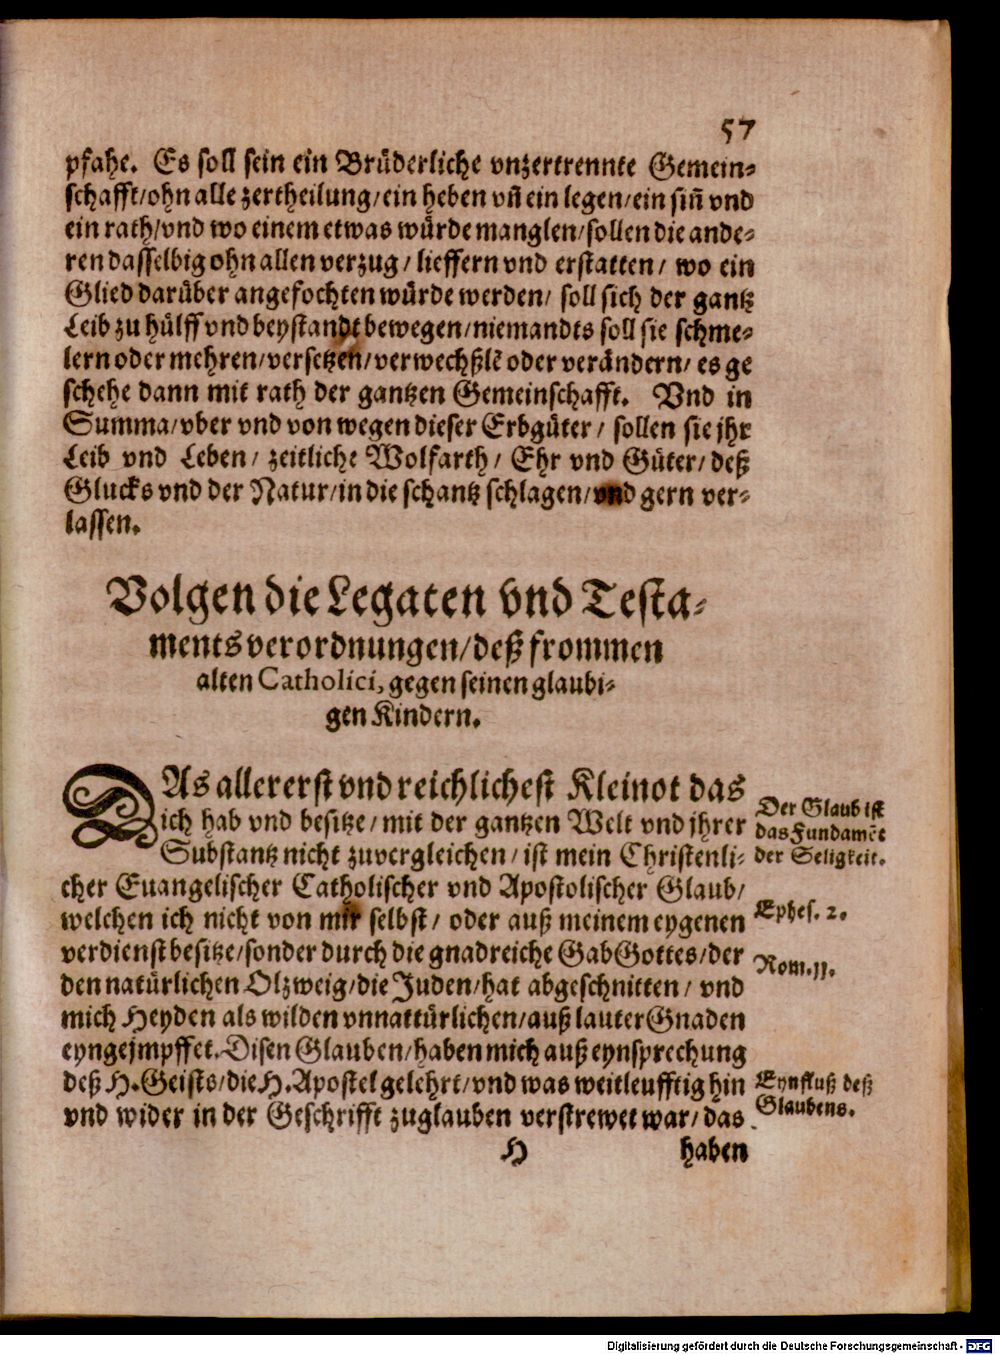 57
pfahe. Es soll sein ein Brüderliche vnzertrennte Gemein-
schafft/ohn alle zertheilung/ein heben vn̄ ein legen/ein sin̄ vnd
ein rath/vnd wo einem etwas würde manglen/sollen die ande-
ren dasselbig ohn allen verzug/ lieffern vnd erstatten/ wo ein
Glied darüber angefochten würde werden/ soll sich der gantz
Leib zu hülff vnd beystandt bewegen/niemandts soll sie schme-
lern oder mehren/versetzen/verwechßlē oder verändern/ es ge
schehe dann mit rath der gantzen Gemeinschafft. Vnd in
Summa/vber vnd von wegen dieser Erbgüter/ sollen sie jhr
Leib vnd Leben/ zeitliche Wolfarth/ Ehr vnd Güter/ deß
Glucks vnd der Natur/in die schantz schlagen/vnd gern ver-
lassen.
Volgen die Legaten vnd Testa-
mentsverordnungen/deß frommen
alten Catholici, gegen seinen glaubi-
gen Kindern.
DAs allererst vnd reichlichest Kleinot das
ich hab vnd besitze/ mit der gantzen Welt vnd jhrer
Substantz nicht zuvergleichen/ ist mein Christenli-
cher Euangelischer Catholischer vnd Apostolischer Glaub/
welchen ich nicht von mir selbst/ oder auß meinem eygenen
verdienst besitze/sonder durch die gnadreiche Gab Gottes/der
den natürlichen Olzweig/die Juden/hat abgeschnitten/ vnd
mich Heyden als wilden vnnattürlichen/auß lauter Gnaden
eyngejmpffet. Disen Glauben/haben mich auß eynsprechung
deß H. Geists/die H. Apostel gelehrt/vnd was weitleufftig hin
vnd wider in der Geschrifft zuglauben verstrewet war/ das
Der Glaub ist
das Fundamēt
der Seligkeit.
Ephes. 2.
Rom. 11.
Eynfluß deß
Glaubens.
H haben
Digitalisierung gefördert durch die Deutsche Forschungsgemeinschaft - DFG